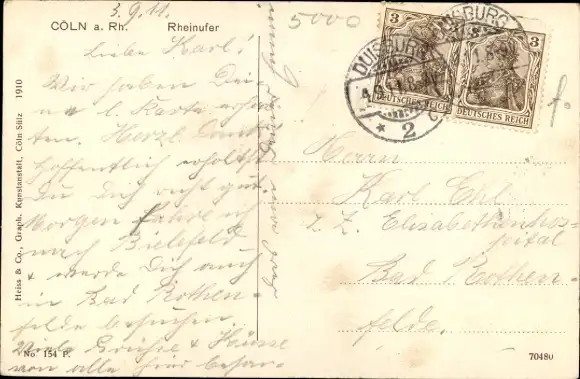 3.9.11.
CÖLN a. Rh. Rheinufer
5000
Lieber Karl!
Wir haben Dei-
ne l. Karte erhal-
ten. Herzl. Dank
hoffentlich erholst
Du Dich recht gut.
Morgen fahre ich
nach Bielefeld
& werde Dich auch
in Bad Rothen-
felde besuchen.
Viele Grüße & Küsse
von alle hier
3 3
DEUTSCHES REICH DEUTSCHES REICH
DUISBURG
DUISBURG
* 2
Herrn
Karl Ehl
z. Z. Elisabethenhos-
pital
Bad Rothen-
felde.
Heiss & Co., Graph. Kunstanstalt, Cöln Sülz 1910
No. 154 P.
70480